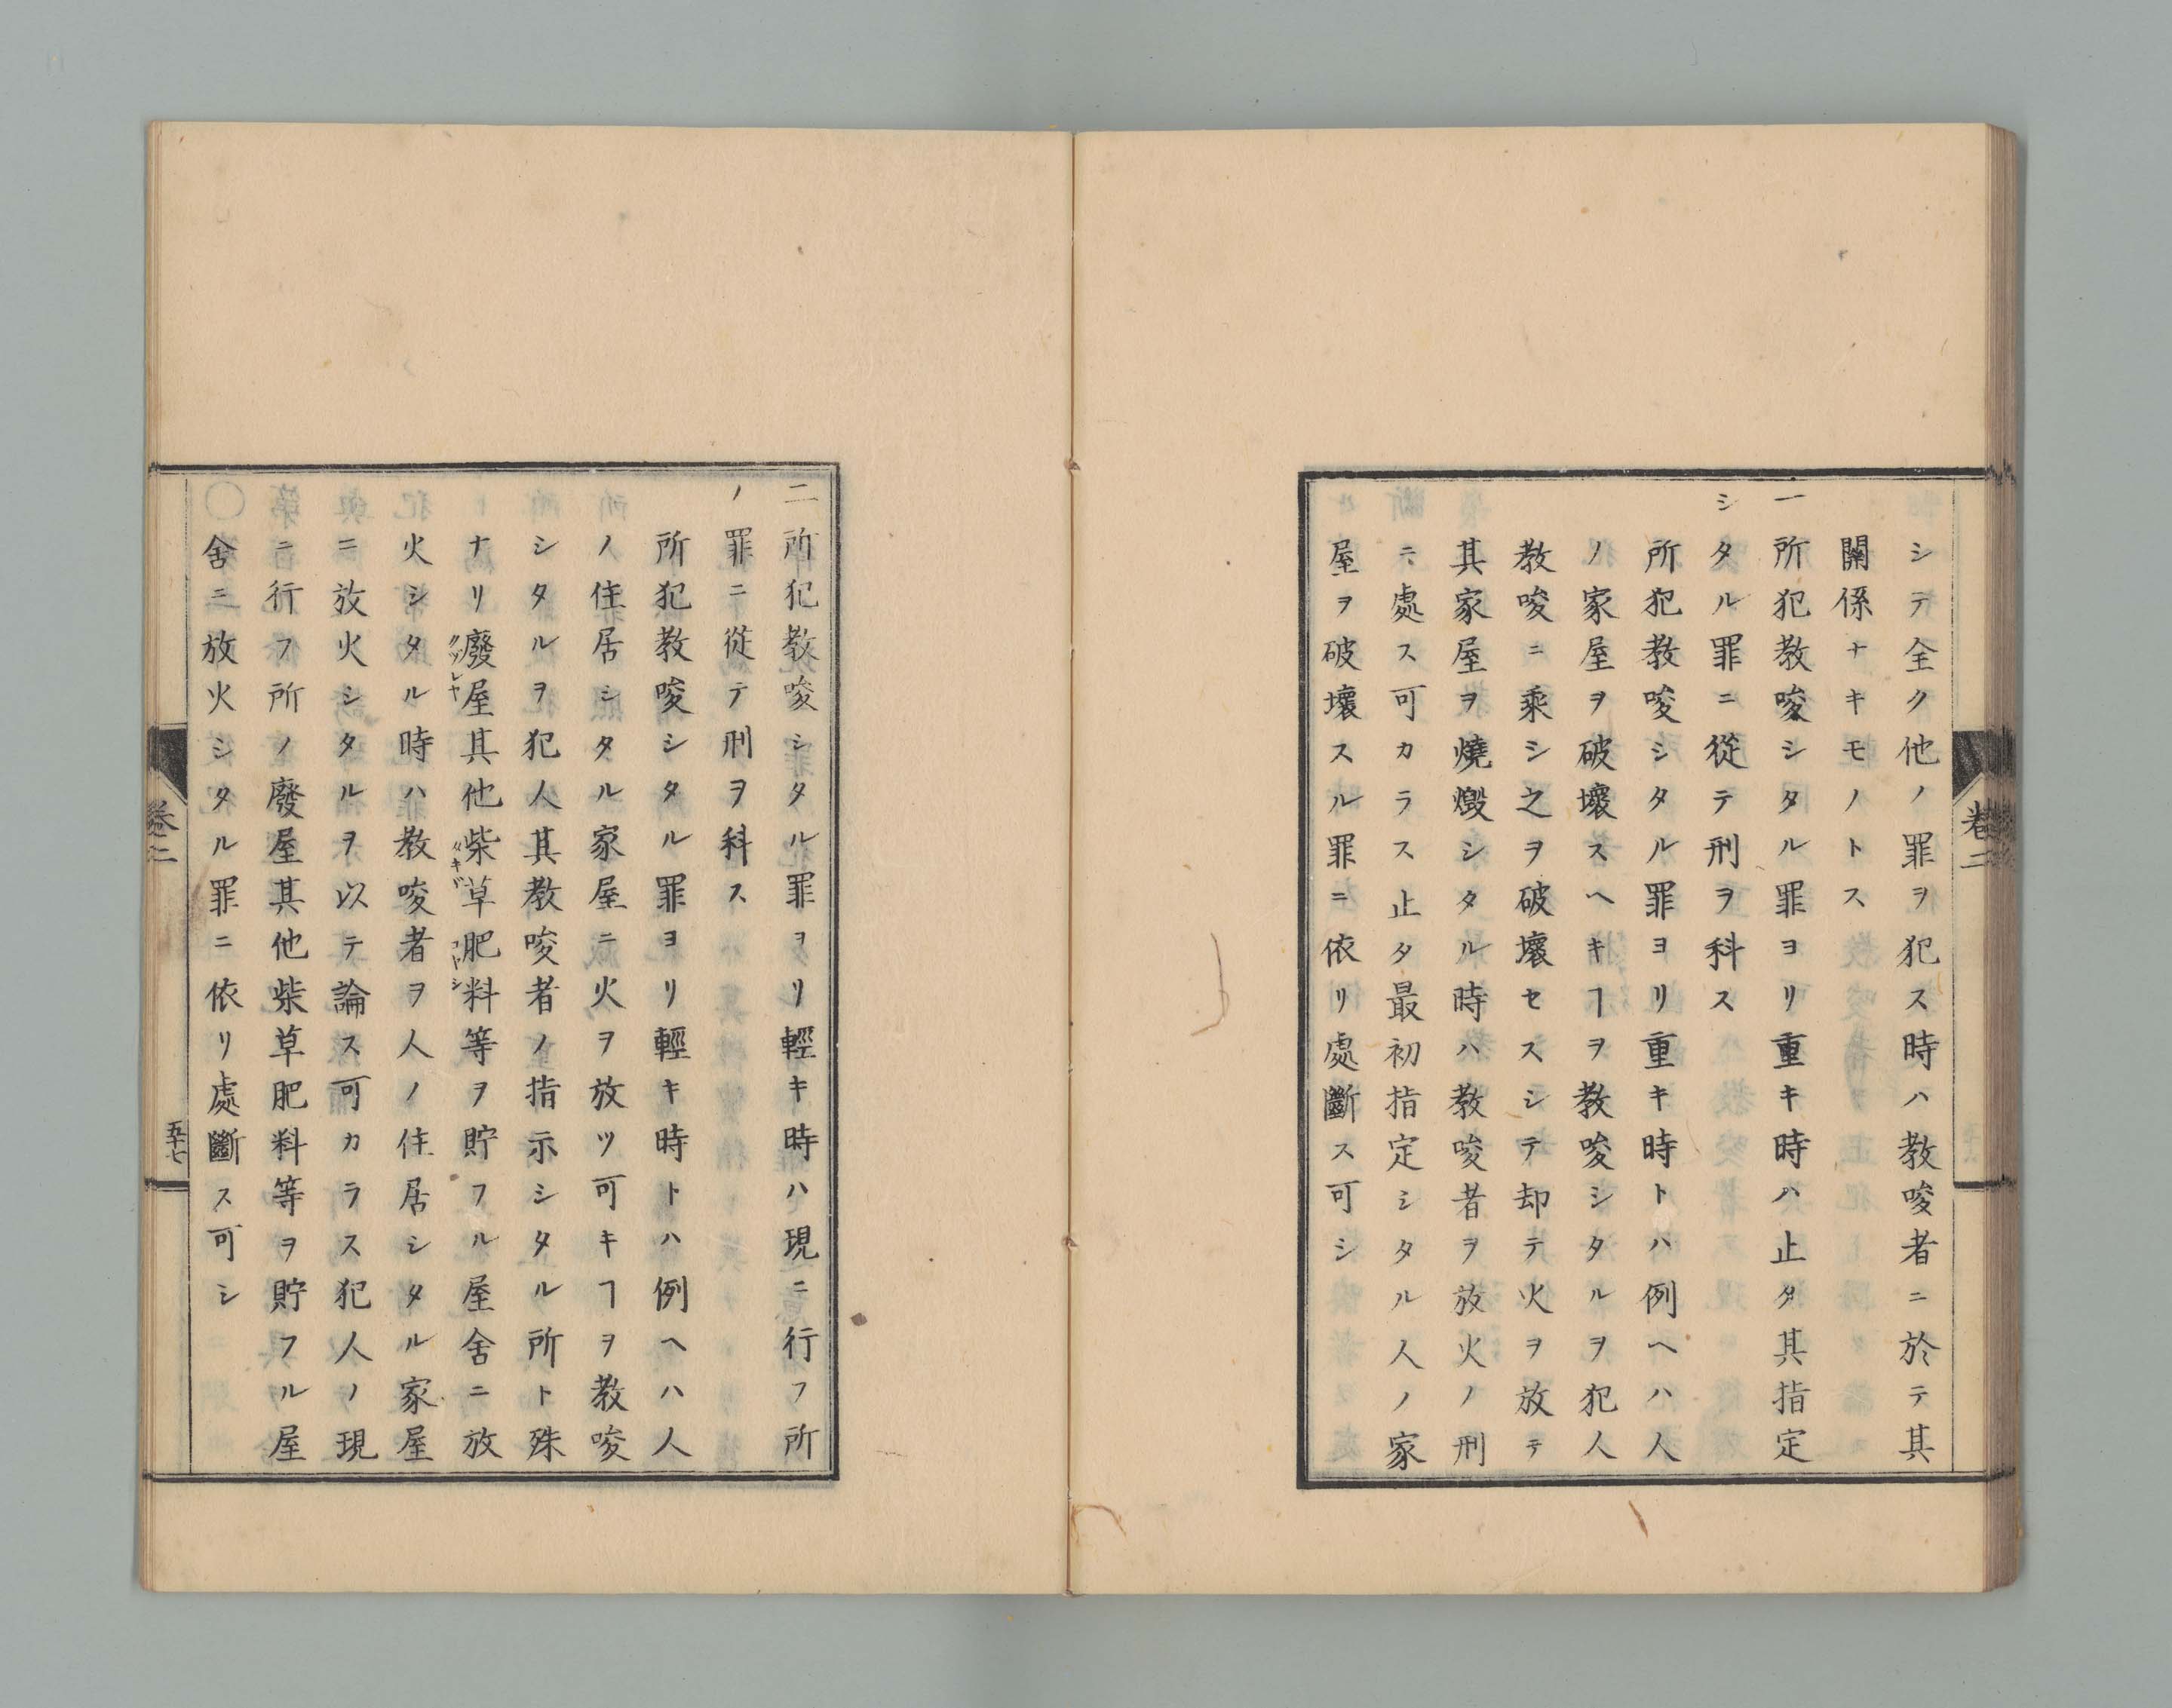 シテ全ク他ノ罪ヲ犯ス時ハ教唆者ニ於テ其
關係ナキモノトス
一所犯教唆シタル罪ヨリ重キ時ハ止タ其指定
シタル罪ニ從テ刑ヲ科ス
所犯教唆シタル罪ヨリ重キ時トハ例ヘハ人
ノ家屋ヲ破壞スヘキヿヲ教唆シタルヲ犯人
教唆ニ乘シ之ヲ破壞セスシテ却テ火ヲ放テ
其家屋ヲ燒燬シタル時ハ教唆者ヲ放火ノ刑
ニ處ス可カラス止タ最初指定シタル人ノ家
屋ヲ破壞スル罪ニ依リ處斷ス可シ
卷二
二所犯教唆シタル罪ヨリ輕キ時ハ現ニ行フ所
ノ罪ニ從テ刑ヲ科ス
所犯教唆シタル罪ヨリ輕キ時トハ例ヘハ人
ノ住居シタル家屋ニ火ヲ放ツ可キヿヲ教唆
シタルヲ犯人其教唆者ノ指示シタル所ト殊
ナリ廢屋其他柴草肥料等ヲ貯フル屋舍ニ放
クツレヤ
タキギ
コヤシ
火シタル時ハ教唆者ヲ人ノ住居シタル家屋
ニ放火シタルヲ以テ論ス可カラス犯人ノ現
ニ行フ所ノ廢屋其他柴草肥料等ヲ貯フル屋
舍ニ放火シタル罪ニ依リ處斷ス可シ
卷二
五十七